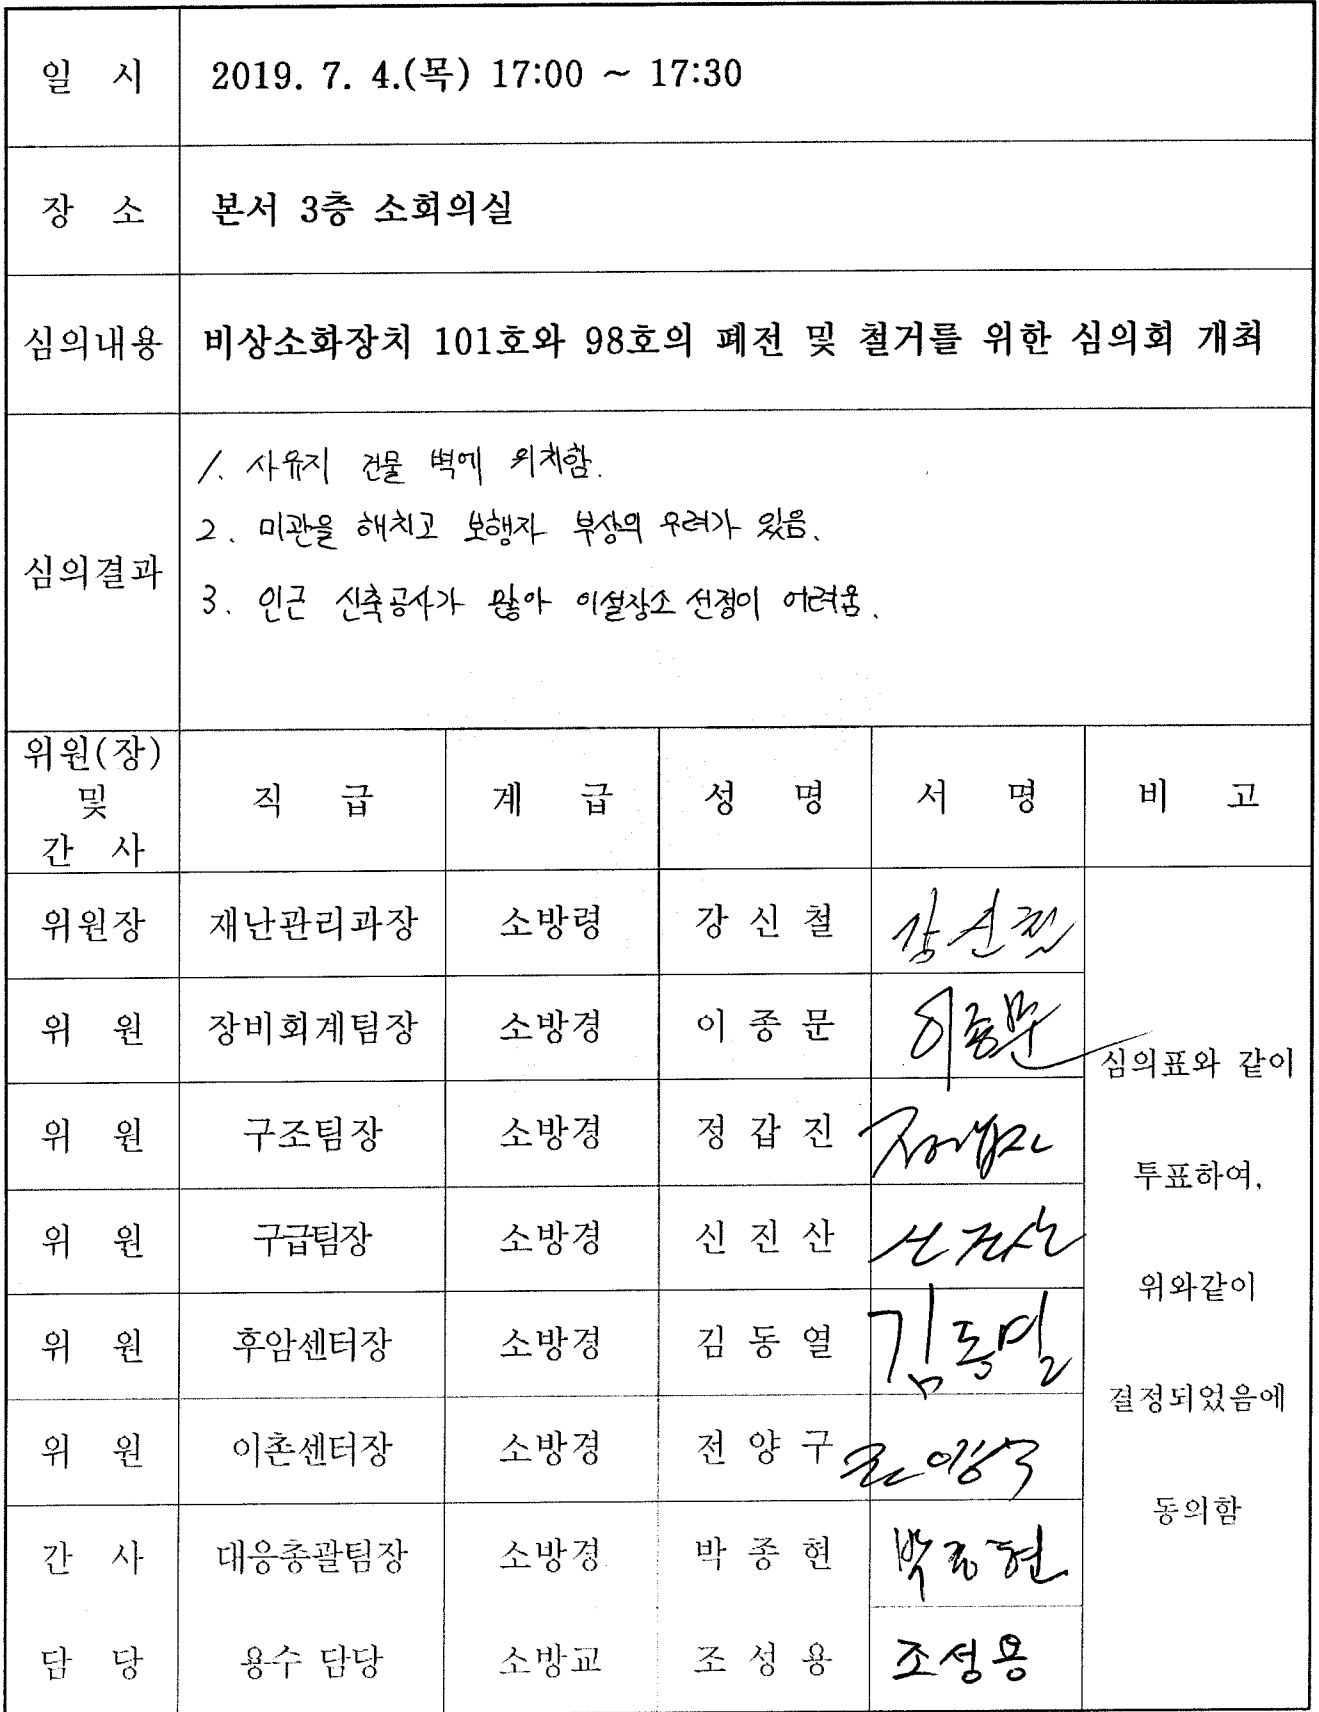 일 시 2019. 7. 4.(목) 17:00 ~ 17:30
장 소 본서 3층 소회의실
심의내용 비상소화장치 101호와 98호의 폐전 및 철거를 위한 심의회 개최
심의결과
1. 사유지 건물 벽에 위치함.
2. 미관을 해치고 보행자 부상의 우려가 있음.
3. 인근 신축공사가 많아 이설장소 선정이 어려움.
위원(장)
및
간 사
직 급 계 급 성 명 서 명 비 고
위원장 재난관리과장 소방령 강 신 철 강신철
위 원 장비회계팀장 소방경 이 종 문 이종문
위 원 구조팀장 소방경 정 갑 진 정갑진
위 원 구급팀장 소방경 신 진 산 신진산
위 원 후암센터장 소방경 김 동 열 김동열
위 원 이촌센터장 소방경 전 양 구 전양구
간 사 대응총괄팀장 소방경 박 종 현 박종현
담 당 용수 담당 소방교 조 성 용 조성용
심의표와 같이
투표하여,
위와같이
결정되었음에
동의함